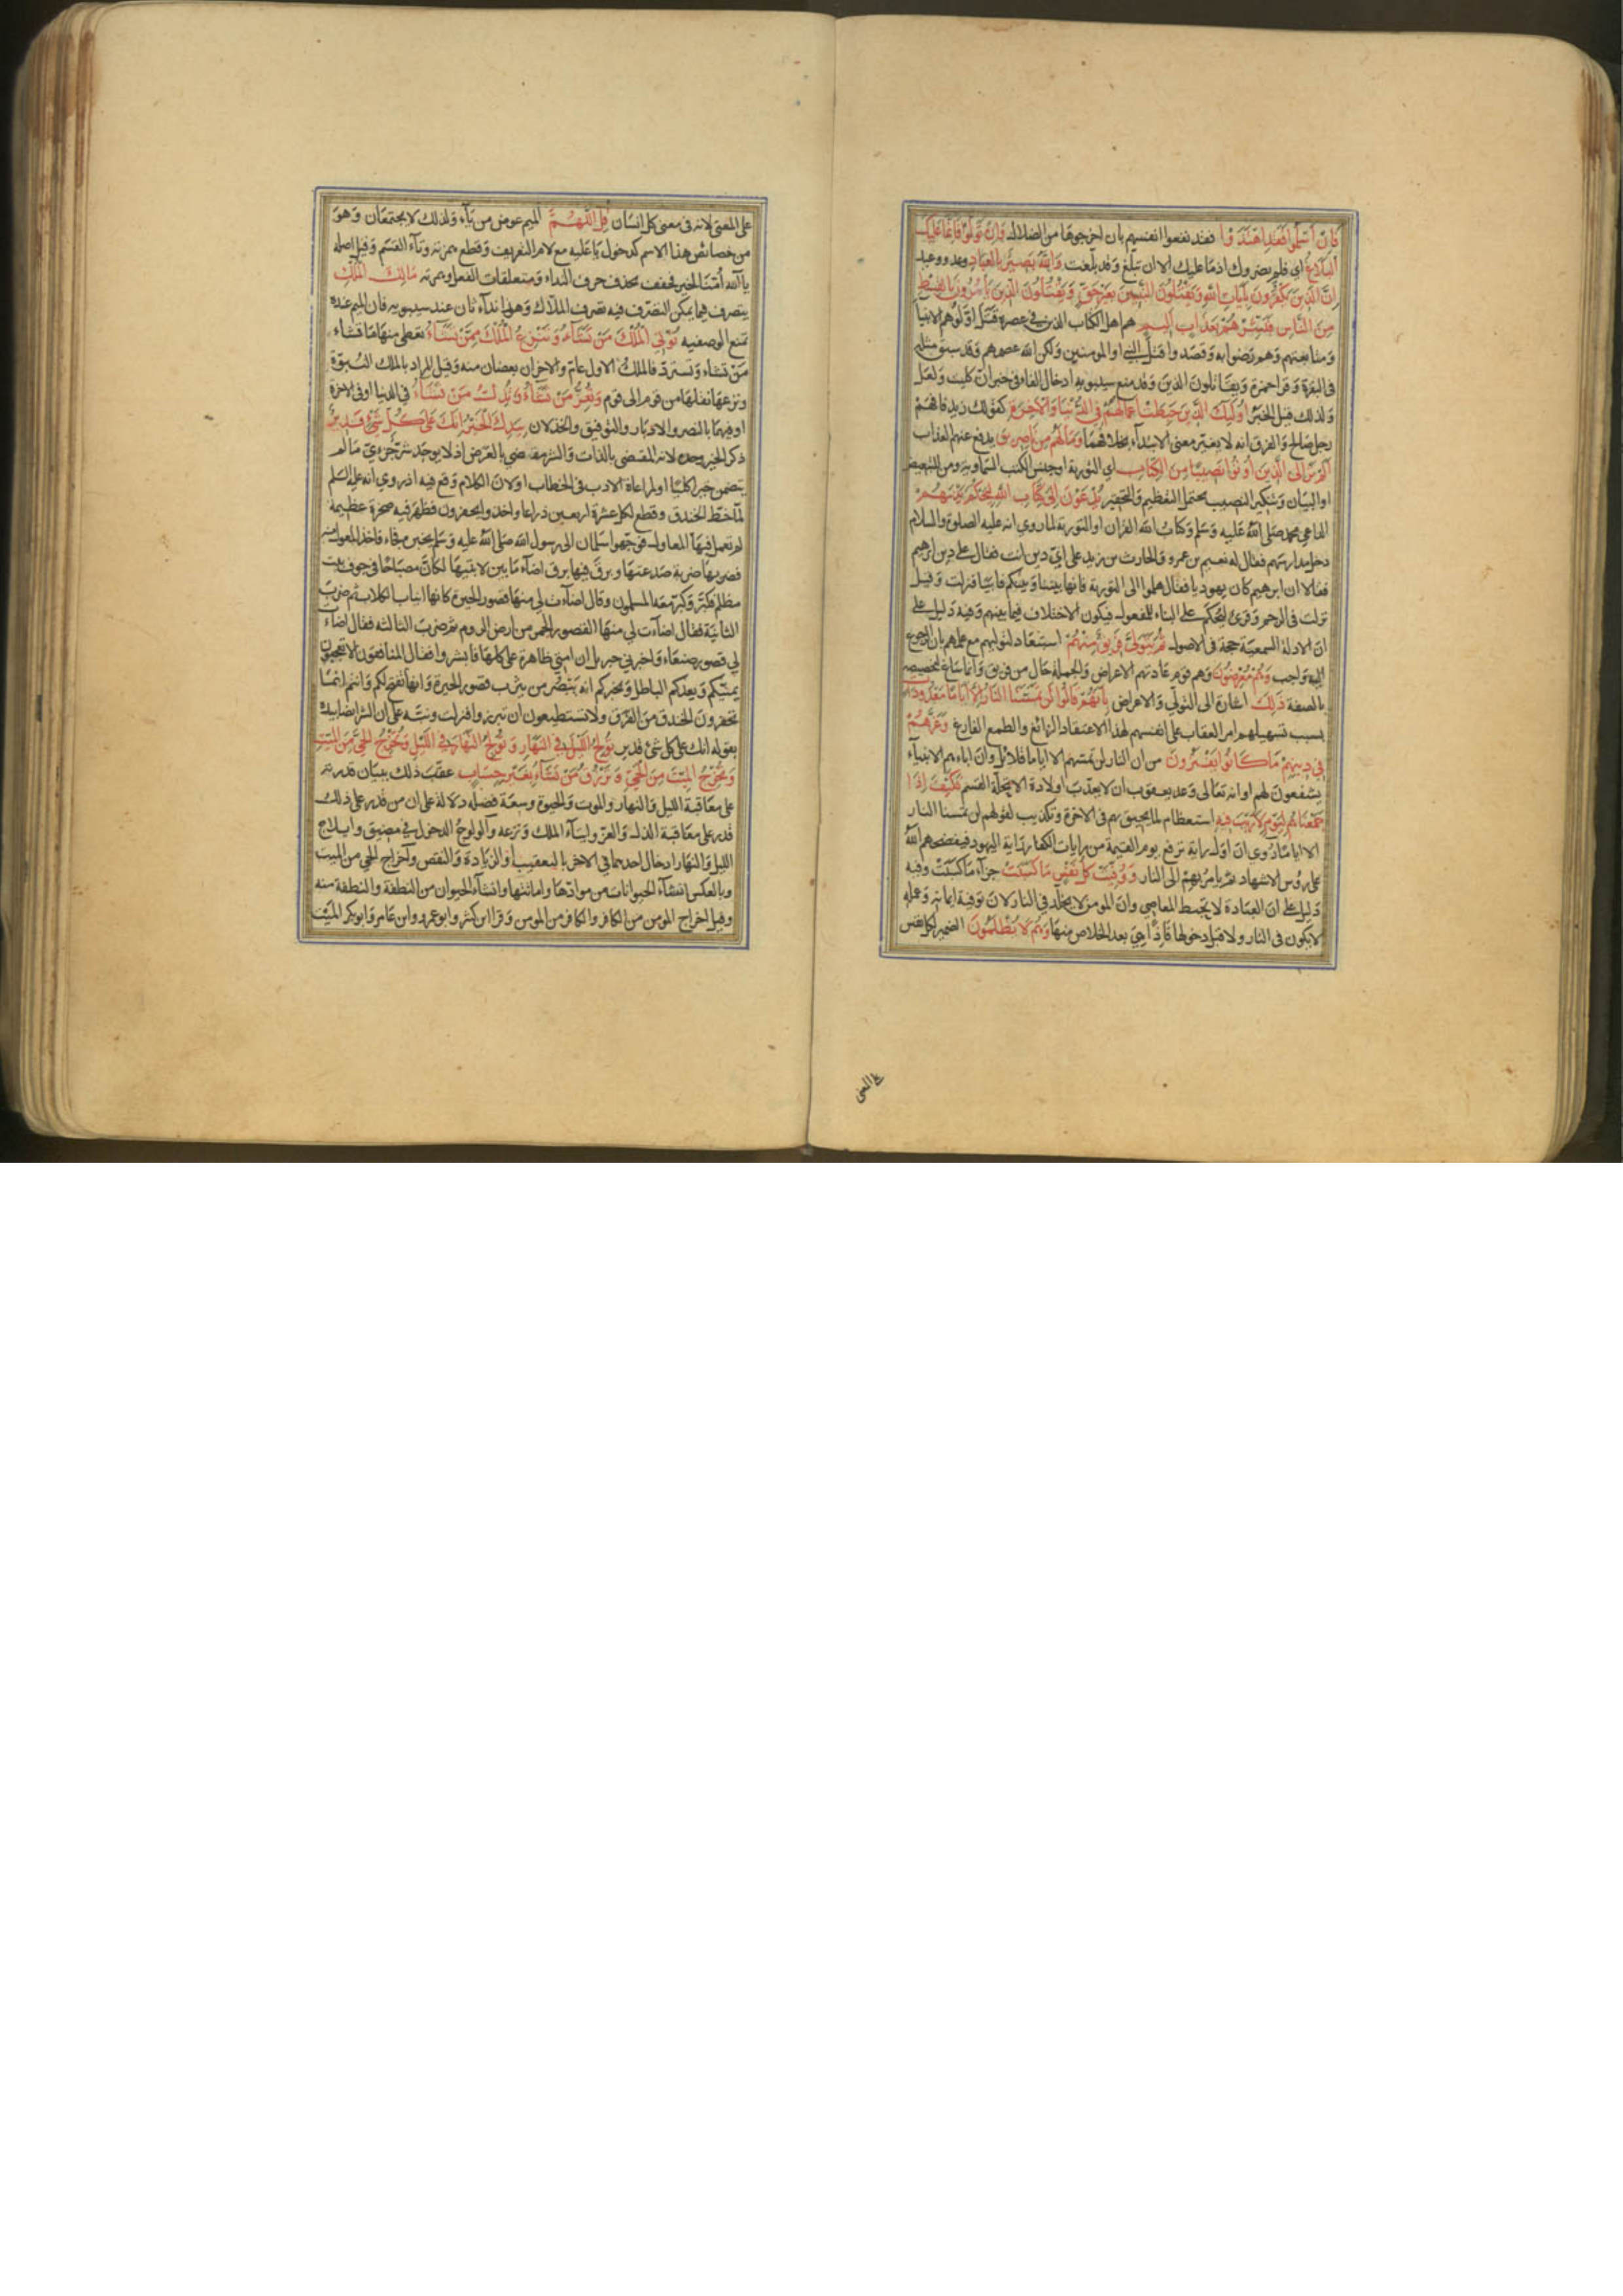 فان اسلموا فقد اهتدوا فقد نفعوا انفسهم بان اخرجوها من الضلالة وان تولوا فانما عليك
البلاغ اي فلم يضروك اذ ما عليك الا ان تبلغ وقد بلغت والله بصير بالعباد وعد ووعيد
ان الذين يكفرون بايات الله ويقتلون النبيين بغير حق ويقتلون الذين يأمرون بالقسط
من الناس فبشرهم بعذاب اليم هم اهل الكتاب الذين في عصره قتل اولوهم الانبيا
ومتابعيهم وهم رضوا به وقصدوا قتل النبي والمومنين ولكن الله عصمهم وقد سبق مثله
في البقرة وقرا حمزة ويقاتلون الذين وقد منع سيبويه ادخال الفاء في خبر ان كليت ولعل
ولذلك قيل الخبر اولئك الذين حبطت اعمالهم في الدنيا والاخرة كقولك زيد فافهم
رجل صالح والفرق انه لا يغير معنى الابتداء بخلافهما وما لهم من ناصرين يدفع عنهم العذاب
الم تر الى الذين اوتوا نصيبا من الكتاب اي التورية او جنس الكتب السماوية ومن للتبعيض
او البيان وتنكير النصيب يحتمل التعظيم والتحقير يدعون الى كتاب الله ليحكم بينهم
الداعي محمد صلى الله عليه وسلم وكتاب الله القران او التورية لما روي انه عليه الصلوة والسلام
دخل مدارسهم فقال له نعيم بن عمرو والحارث بن زيد على اي دين انت فقال على دين ابرهيم
فقالا ان ابرهيم كان يهوديا فقال هلموا الى التورية فانها بيننا وبينكم فابيا فنزلت وقيل
نزلت في الرجم وقرئ ليحكم على البناء للمفعول فيكون الاختلاف فيما بينهم وفيه دليل على
ان الادلة السمعية حجة في الاصول ثم يتولى فريق منهم استبعاد لتوليهم مع علمهم بان الرجوع
اليه واجب وهم معرضون وهم قوم عادتهم الاعراض والجملة حال من فريق وانما ساغ لتخصيصه
بالصفة ذلك اشارة الى التولي والاعراض بانهم قالوا لن تمسنا النار الا اياما معدودات
بسبب تسهيلهم امر العقاب على انفسهم لهذا الاعتقاد الزائغ والطمع الفارغ وغرهم
في دينهم ما كانوا يفترون من ان النار لن تمسهم الا اياما قلائل وان اباءهم الانبياء
يشفعون لهم او انه تعالى وعد يعقوب ان لا يعذب اولاده الا تحلة القسم فكيف اذا
جمعناهم ليوم لا ريب فيه استعظام لما يحيق بهم في الاخرة وتكذيب لقولهم لن تمسنا النار
الا اياما روي ان اول راية ترفع يوم القيمة من رايات الكفار راية اليهود فيفضحهم الله
على رؤس الاشهاد ثم يامر بهم الى النار ووفيت كل نفس ما كسبت جزآء ما كسبت وفيه
دليل على ان العبادة لا تحبط المعاصي وان المومن لا يخلد في النار لان توفية ايمانه وعمله
لا يكون في النار ولا قبل دخولها فاذا هي بعد الخلاص منها وهم لا يظلمون الضمير لكل نفس
على المعنى
على المعنى لانه في معنى كل انسان قل اللهم الميم عوض من يآء ولذلك لا يجتمعان وهو
من خصائص هذا الاسم كدخول يا عليه مع لام التعريف وقطع همزته وتآء القسم وقيل اصله
يا الله أمنا بالخير فخفف بحذف حرف النداء ومتعلقات الفعل وهمزته مالك الملك
يتصرف فيما يمكن التصرف فيه تصرف الملاك وهو نداء ثان عند سيبويه فان الميم عنده
تمنع الوصفيه تؤتي الملك من تشاء وتنزع الملك ممن تشاء تعطي منها ما تشاء
من تشاء وتسترد فالملك الاول عام والاخران بعضان منه وقيل المراد بالملك النبوة
ونزعها نقلها من قوم الى قوم وتعز من تشاء وتذل من تشاء في الدنيا او في الاخرة
او فيهما بالنصر والادبار والتوفيق والخذلان بيدك الخير انك على كل شئ قدير
ذكر الخير وحده لانه المقضي بالذات والشر مقضي بالعرض اذ لا يوجد شر جزوي ما لم
يتضمن خيرا كليا او لمراعاة الادب في الخطاب او لان الكلام وقع فيه اذ روي انه عليه السلم
لما خط الخندق وقطع لكل عشرة اربعين ذراعا واخذوا يحفرون فظهر فيه صخرة عظيمة
لم تعمل فيها المعاول فوجهوا سلمان الى رسول الله صلى الله عليه وسلم يخبره فجاء فاخذ المعول منه
فضربها ضربة صدعتها وبرق منها برق اضآء ما بين لابتيها لكأن مصباحا في جوف بيت
مظلم فكبر وكبر معه المسلمون وقال اضاءت لي منها قصور الحيرة كانها انياب الكلاب ثم ضرب
الثانية فقال اضآءت لي منها القصور الحمر من ارض الروم ثم ضرب الثالثه فقال اضاءت
لي قصور صنعاء واخبرني جبريل ان امتي ظاهرة على كلها فابشروا فقال المنافقون الا تعجبون
يمنيكم ويعدكم الباطل ويخبركم انه يبصر من يثرب قصور الحيرة وانها تفتح لكم وانتم انما
تحفرون الخندق من الفرق ولا تستطيعون ان تبرزوا فنزلت ونبه على ان الشر ايضا بيده
بقوله انك على كل شئ قدير تولج الليل في النهار وتولج النهار في الليل وتخرج الحي من الميت
وتخرج الميت من الحي وترزق من تشاء بغير حساب عقب ذلك ببيان قدرته
على معاقبة الليل والنهار والموت والحيوة وسعة فضله دلالة على ان من قدر على ذلك
قدر على معاقبة الذل والعز وايتآء الملك ونزعه والولوج الدخول في مضيق وايلاج
الليل والنهار ادخال احدهما في الاخر بالتعقيب او الزيادة والنقص واخراج الحي من الميت
وبالعكس انشآء الحيوانات من موادها واماتتها وانشآء الحيوان من النطفة والنطفة منه
وقيل اخراج المومن من الكافر والكافر من المومن وقرا ابن كثير وابو عمرو وابن عامر وابو بكر الميت